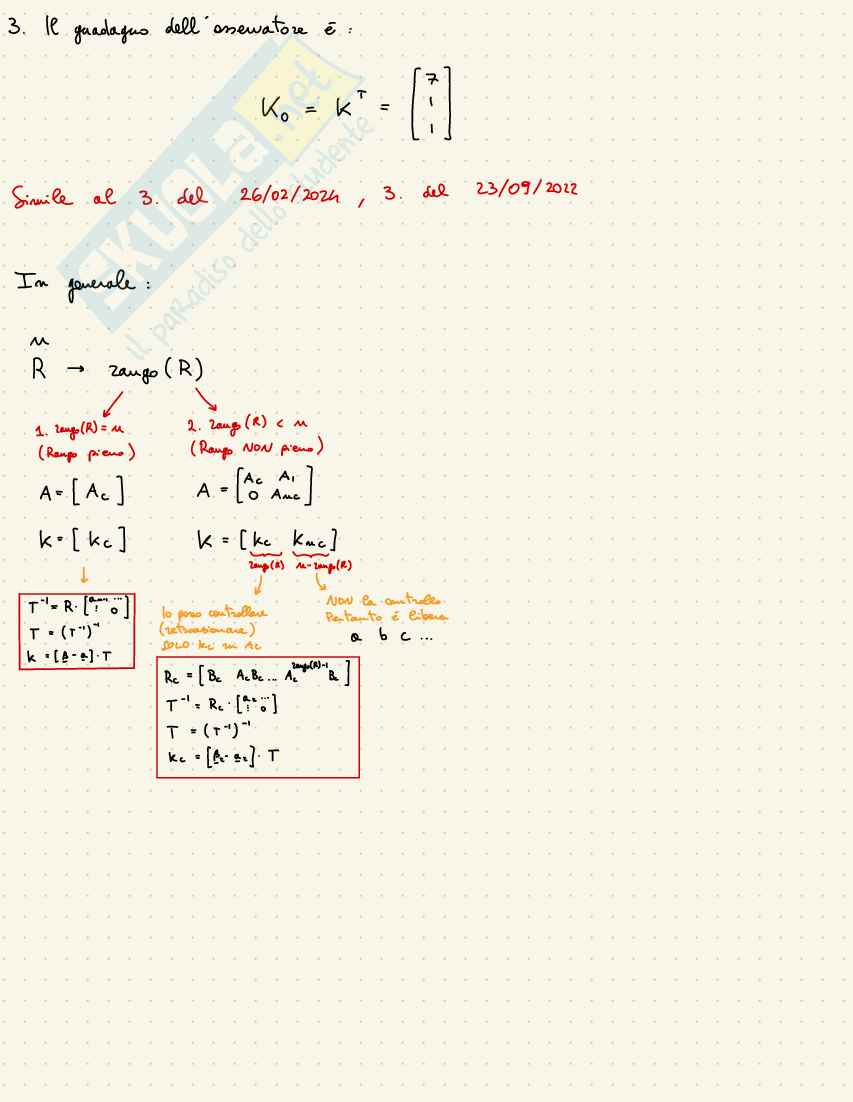 3. Il guadagno dell'osservatore è:
K₀ = K^T = [7 1 1]
SKUOLA.net
il paradiso dello studente
Simile al 3. del 26/02/2024, 3. del 23/09/2022
In generale:
n
R → rango(R)
1. rango(R) = n
(Rango pieno)
A = [Ac]
K = [kc]
T⁻¹ = R · [aₙ₋₁ ... ⋮ 0]
T = (T⁻¹)⁻¹
k = [α - a] · T
2. rango(R) < n
(Rango NON pieno)
A = [Ac A₁ 0 Anc]
K = [kc knc]
rango(R) n-rango(R)
Io posso controllare
(retroazionare)
SOLO kc su Ac
NON la controllo.
Pertanto è libera
a b c ...
Rc = [Bc AcBc ... Ac^(rango(R)-1) Bc]
T⁻¹ = Rc · [a₂ ... ⋮ 0]
T = (T⁻¹)⁻¹
kc = [αc - ac] · T